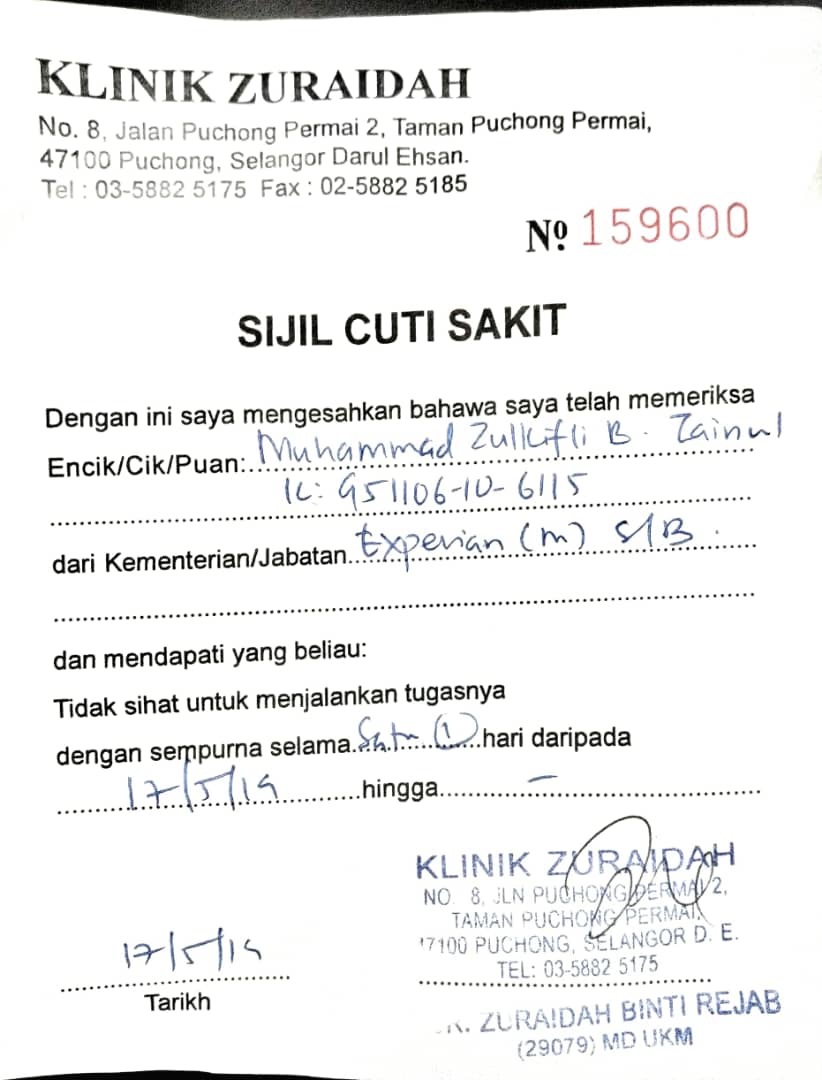 KLINIK ZURAIDAH
No. 8, Jalan Puchong Permai 2, Taman Puchong Permai,
47100 Puchong, Selangor Darul Ehsan.
Tel : 03-5882 5175 Fax : 02-5882 5185
Nº 159600
SIJIL CUTI SAKIT
Dengan ini saya mengesahkan bahawa saya telah memeriksa
Encik/Cik/Puan: Muhammad Zulkifli B. Zainul
IC: 951106-10-6115
dari Kementerian/Jabatan Experian (M) S/B.
dan mendapati yang beliau:
Tidak sihat untuk menjalankan tugasnya
dengan sempurna selama Satu (1) hari daripada
17/5/19 hingga –
KLINIK ZURAIDAH
NO. 8, JLN PUCHONG PERMAI 2,
TAMAN PUCHONG PERMAI,
47100 PUCHONG, SELANGOR D. E.
TEL: 03-5882 5175
17/5/19
Tarikh
DR. ZURAIDAH BINTI REJAB
(29079) MD UKM